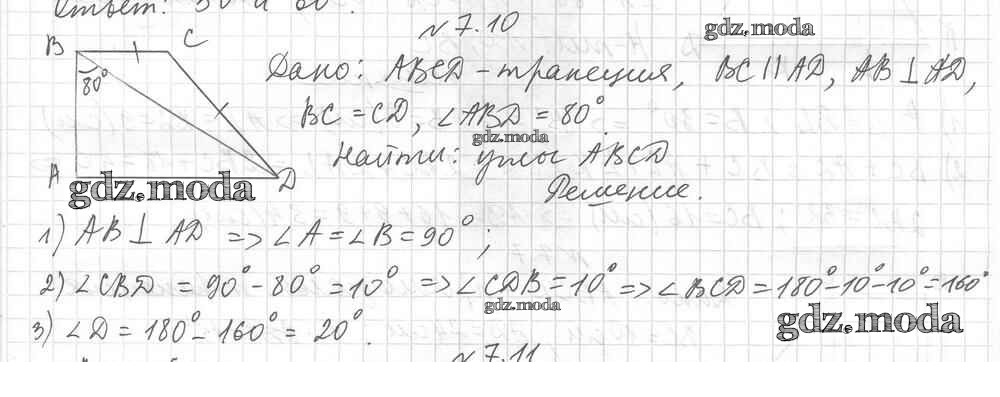 Ответ: 30° и 60°.
№ 7.10
gdz.moda
B C
80°
A D
Дано: ABCD - трапеция, BC || AD, AB ⊥ AD,
BC = CD, ∠ABD = 80°.
gdz.moda
Найти: углы ABCD
gdz.moda
Решение.
1) AB ⊥ AD => ∠A = ∠B = 90°;
2) ∠CBD = 90° - 80° = 10° => ∠CDB = 10° => ∠BCD = 180° - 10° - 10° = 160°
gdz.moda
3) ∠D = 180° - 160° = 20°.
gdz.moda
№ 7.11